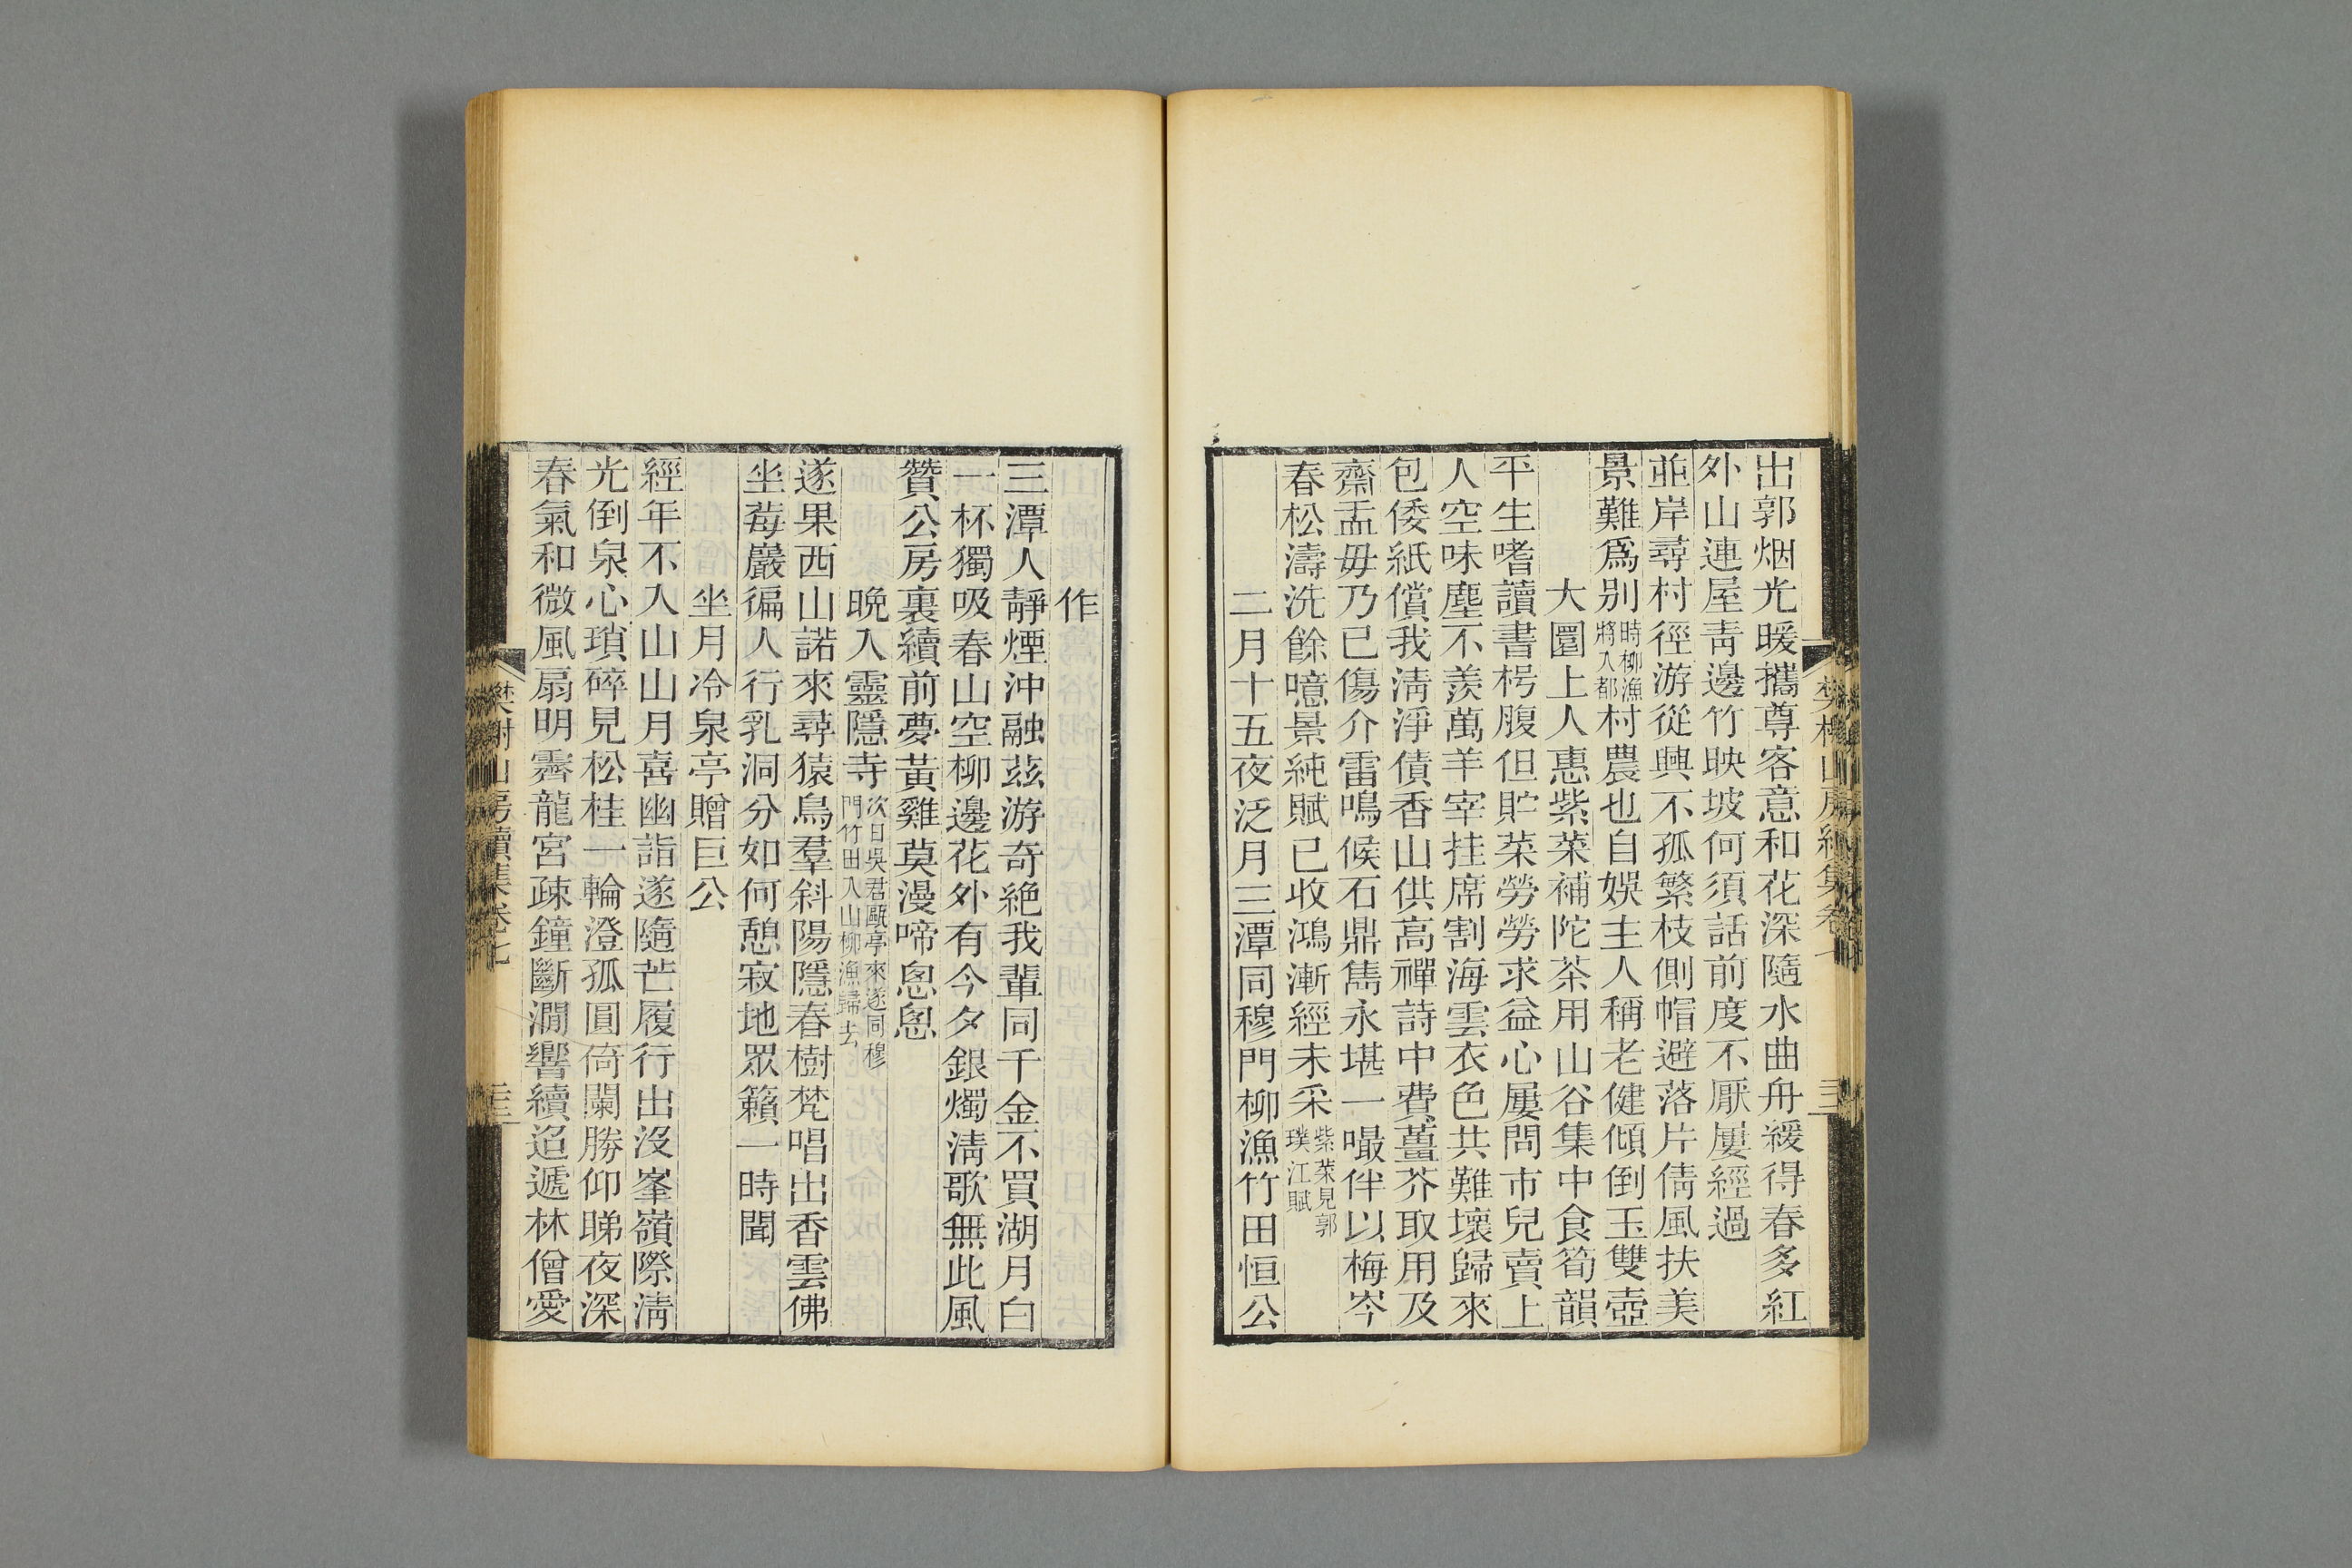 出郭烟光暖攜尊客意和花深隨水曲舟緩得春多紅
外山連屋靑邊竹映坡何須話前度不厭屢經過
並岸尋村徑游從興不孤繁枝側帽避落片倩風扶美
景難爲别時柳漁將入都村農也自娛主人稱老健傾倒玉雙壺
大圜上人惠紫菜補陀茶用山谷集中食筍韻
平生嗜讀書枵腹但貯菜勞勞求益心屢問市兒賣上
人空味塵不羨萬羊宰挂席割海雲衣色共難壞歸來
包倭紙償我淸淨債香山供高禪詩中費薑芥取用及
齋盂毋乃已傷介雷鳴候石鼎雋永堪一嘬伴以梅岑
春松濤洗餘噫景純賦已收鴻漸經未采紫菜見郭璞江賦
二月十五夜泛月三潭同穆門柳漁竹田恒公
作
三潭人靜煙沖融茲游奇絶我輩同千金不買湖月白
一杯獨吸春山空柳邊花外有今夕銀燭淸歌無此風
贊公房裏續前夢黃雞莫漫啼悤悤
晚入靈隱寺次日吳君甌亭來遂同穆門竹田入山柳漁歸去
遂果西山諾來尋猿鳥羣斜陽隱春樹梵唱出香雲佛
坐莓巖徧人行乳洞分如何憩寂地眾籟一時聞
坐月冷泉亭贈巨公
經年不入山山月喜幽詣遂隨芒履行出沒峯嶺際淸
光倒泉心瑣碎見松桂一輪澄孤圓倚闌勝仰睇夜深
春氣和微風扇明霽龍宮疎鐘斷澗響續迢遞林僧愛
樊榭山房續集卷七